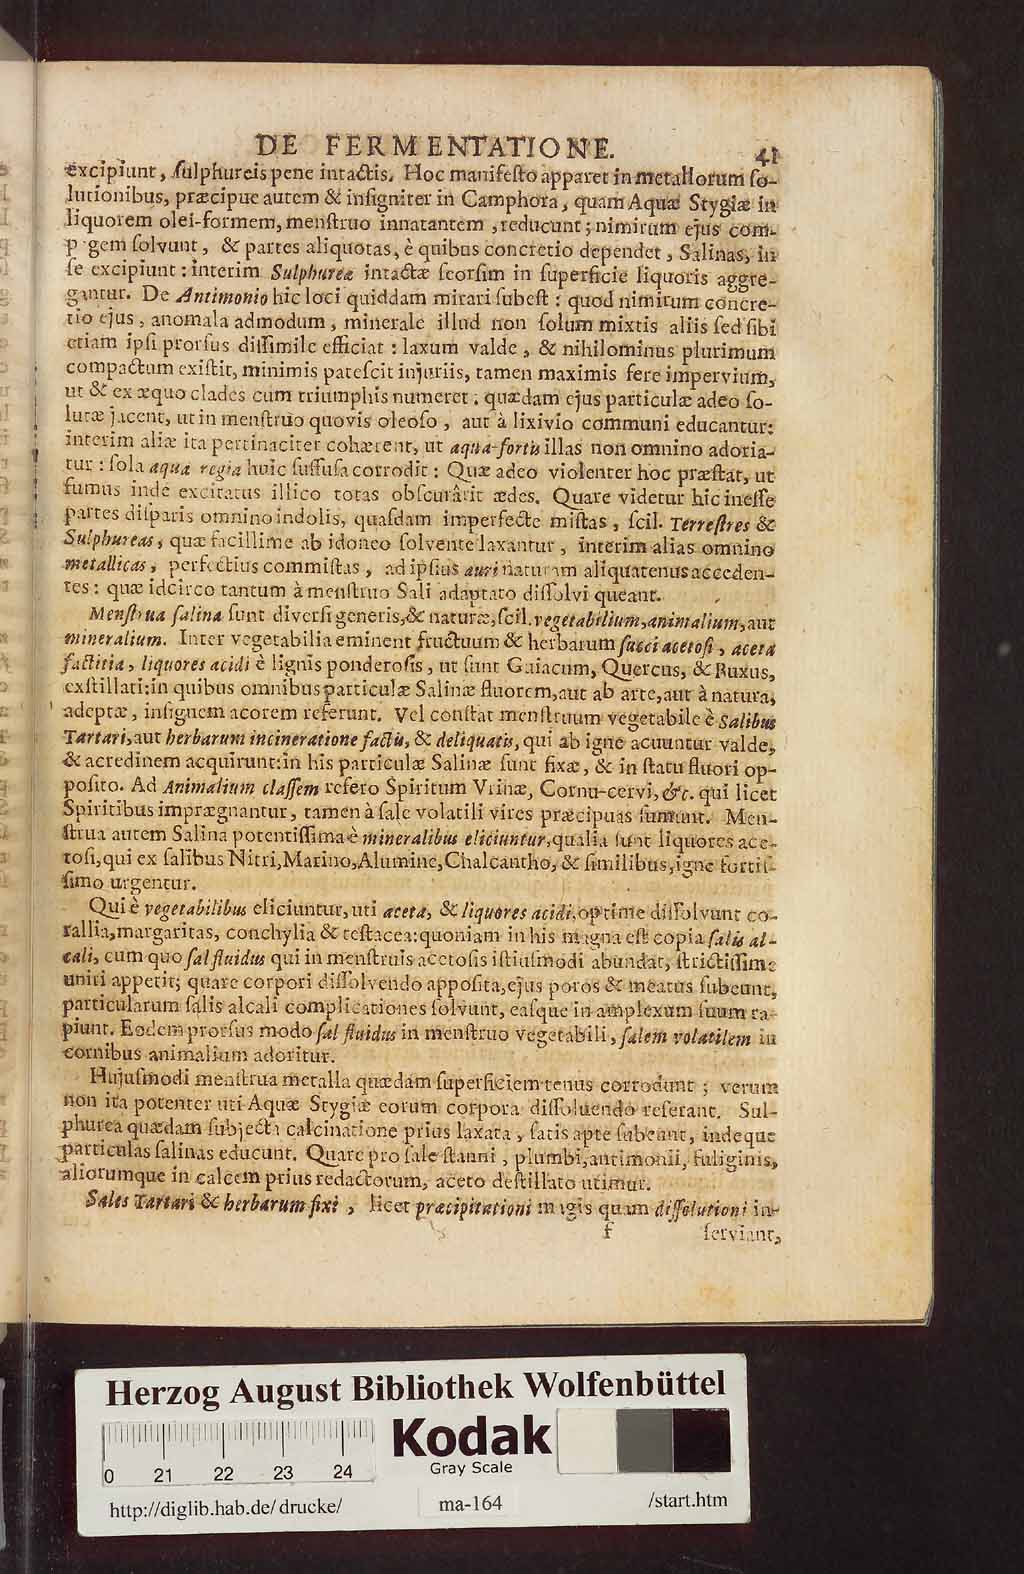 DE FERMENTATIONE. 41
excipiunt, ſulphureis pene intactis. Hoc manifeſto apparet in metallorum ſo-
lutionibus, præcipue autem & inſigniter in Camphora, quam Aquæ Stygiæ in
liquorem olei-formem, menſtruo innatantem, reducunt; nimirum ejus com-
p gem ſolvunt, & partes aliquotas, è quibus concretio dependet, Salinas, in
ſe excipiunt: interim Sulphurea intactæ ſeorſim in ſuperficie liquoris aggre-
gantur. De Antimonio hic loci quiddam mirari ſubeſt: quod nimirum concre-
tio ejus, anomala admodum, minerale illud non ſolum mixtis aliis ſed ſibi
etiam ipſi prorſus diſſimile efficiat: laxum valde, & nihilominus plurimum
compactum exiſtit, minimis pateſcit injuriis, tamen maximis fere impervium,
ut & ex æquo clades cum triumphis numeret; quædam ejus particulæ adeo ſo-
lutæ jacent, ut in menſtruo quovis oleoſo, aut à lixivio communi educantur:
interim aliæ ita pertinaciter cohærent, ut aqua-fortis illas non omnino adoria-
tur: ſola aqua regia huic ſuffuſa corrodit: Quæ adeo violenter hoc præſtat, ut
fumus inde excitatus illico totas obſcurârit ædes. Quare videtur hic ineſſe
partes diſparis omnino indolis, quaſdam imperfecte miſtas, ſcil. Terreſtres &
Sulphureas, quæ facillime ab idoneo ſolvente laxantur, interim alias omnino
metallicas, perfectius commiſtas, ad ipſius auri naturam aliquatenus acceden-
tes: quæ idcirco tantum à menſtruo Sali adaptato diſſolvi queant.
Menſtrua ſalina ſunt diverſi generis, & naturæ, ſcil. vegetabilium, animalium, aut
mineralium. Inter vegetabilia eminent fructuum & herbarum ſucci acetoſi, aceta
factitia, liquores acidi è lignis ponderoſis, ut ſunt Gaiacum, Quercus, & Buxus,
exſtillati: in quibus omnibus particulæ Salinæ fluorem, aut ab arte, aut à natura,
adeptæ, inſignem acorem referunt. Vel conſtat menſtruum vegetabile è Salibus
Tartari, aut herbarum incineratione factis, & deliquatis, qui ab igne acuuntur valde,
& acredinem acquirunt: in his particulæ Salinæ ſunt fixæ, & in ſtatu fluori op-
poſito. Ad Animalium claſſem refero Spiritum Vrinæ, Cornu-cervi, &c. qui licet
Spiritibus imprægnantur, tamen à ſale volatili vires præcipuas ſumunt. Men-
ſtrua autem Salina potentiſſima è mineralibus eliciuntur, qualia ſunt liquores ace-
toſi, qui ex ſalibus Nitri, Marino, Alumine, Chalcantho, & ſimilibus, igne fortiſ-
ſimo urgentur.
Qui è vegetabilibus eliciuntur, uti aceta, & liquores acidi, optime diſſolvunt co-
rallia, margaritas, conchylia & teſtacea: quoniam in his magna eſt copia ſalis al-
cali, cum quo ſal fluidus qui in menſtruis acetoſis iſtiuſmodi abundat, ſtrictiſſime
uniri appetit; quare corpori diſſolvendo appoſita, ejus poros & meatus ſubeunt,
particularum ſalis alcali complicationes ſolvunt, eaſque in amplexum ſuum ra-
piunt. Eodem prorſus modo ſal fluidus in menſtruo vegetabili, ſalem volatilem in
cornibus animalium adoritur.
Hujuſmodi menſtrua metalla quædam ſuperficiem-tenus corrodunt; verum
non ita potenter uti Aquæ Stygiæ eorum corpora diſſoluendo referant. Sul-
phurea quædam ſubjecta calcinatione prius laxata, ſatis apte ſubeunt, indeque
particulas ſalinas educunt. Quare pro ſale ſtanni, plumbi, antimonii, fuliginis,
aliorumque in calcem prius redactorum, aceto deſtillato utimur.
Sales Tartari & herbarum fixi, licet præcipitationi magis quam diſſolutioni in-
f ſerviant,
Herzog August Bibliothek Wolfenbüttel
Kodak
Gray Scale
0 21 22 23 24
http://diglib.hab.de/drucke/ ma-164 /start.htm